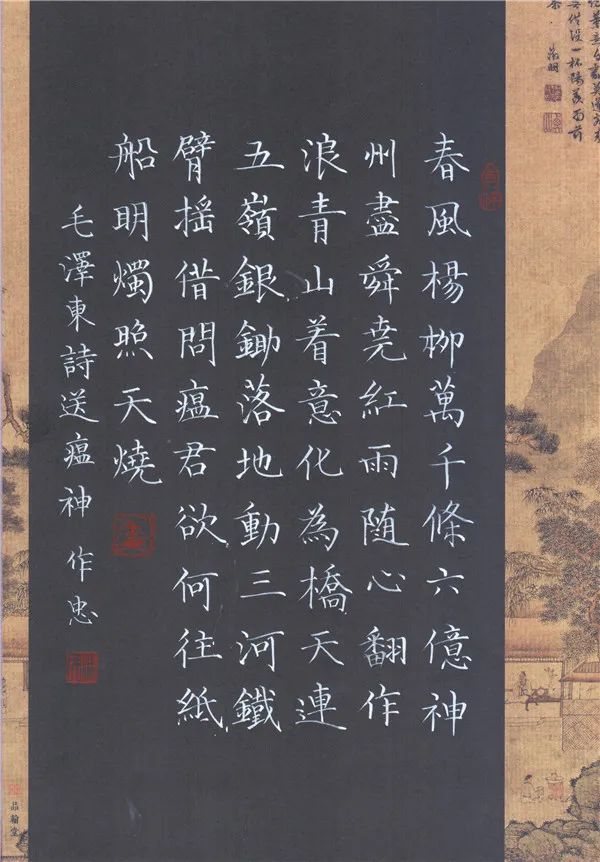 春風楊柳萬千條六億神
州盡舜堯紅雨随心翻作
浪青山着意化為橋天連
五嶺銀鋤落地動三河鐵
臂摇借問瘟君欲何往紙
船明燭照天燒
毛澤東詩送瘟神 作忠
一杯陽羨雨前
茶 徵明
品翰堂